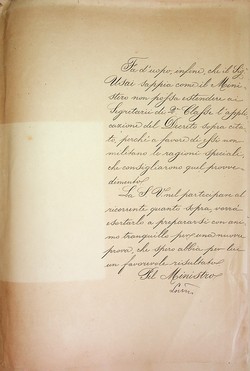 Fa d'uopo, infine, che il Sig.
Usai sappia come il Mini-
stero non possa estendere ai
Segretari di 2ª Classe l'appli-
cazione del Decreto sopra cita-
to, perchè a favore di essi non
militano le ragioni speciali
che consigliarono quel provve-
dimento.
La S. V. nel partecipare al
ricorrente quanto sopra, vorrà
esortarlo a prepararsi con ani-
mo tranquillo per una nuova
prova, che spero abbia per lui
un favorevole risultato.
Pel Ministro